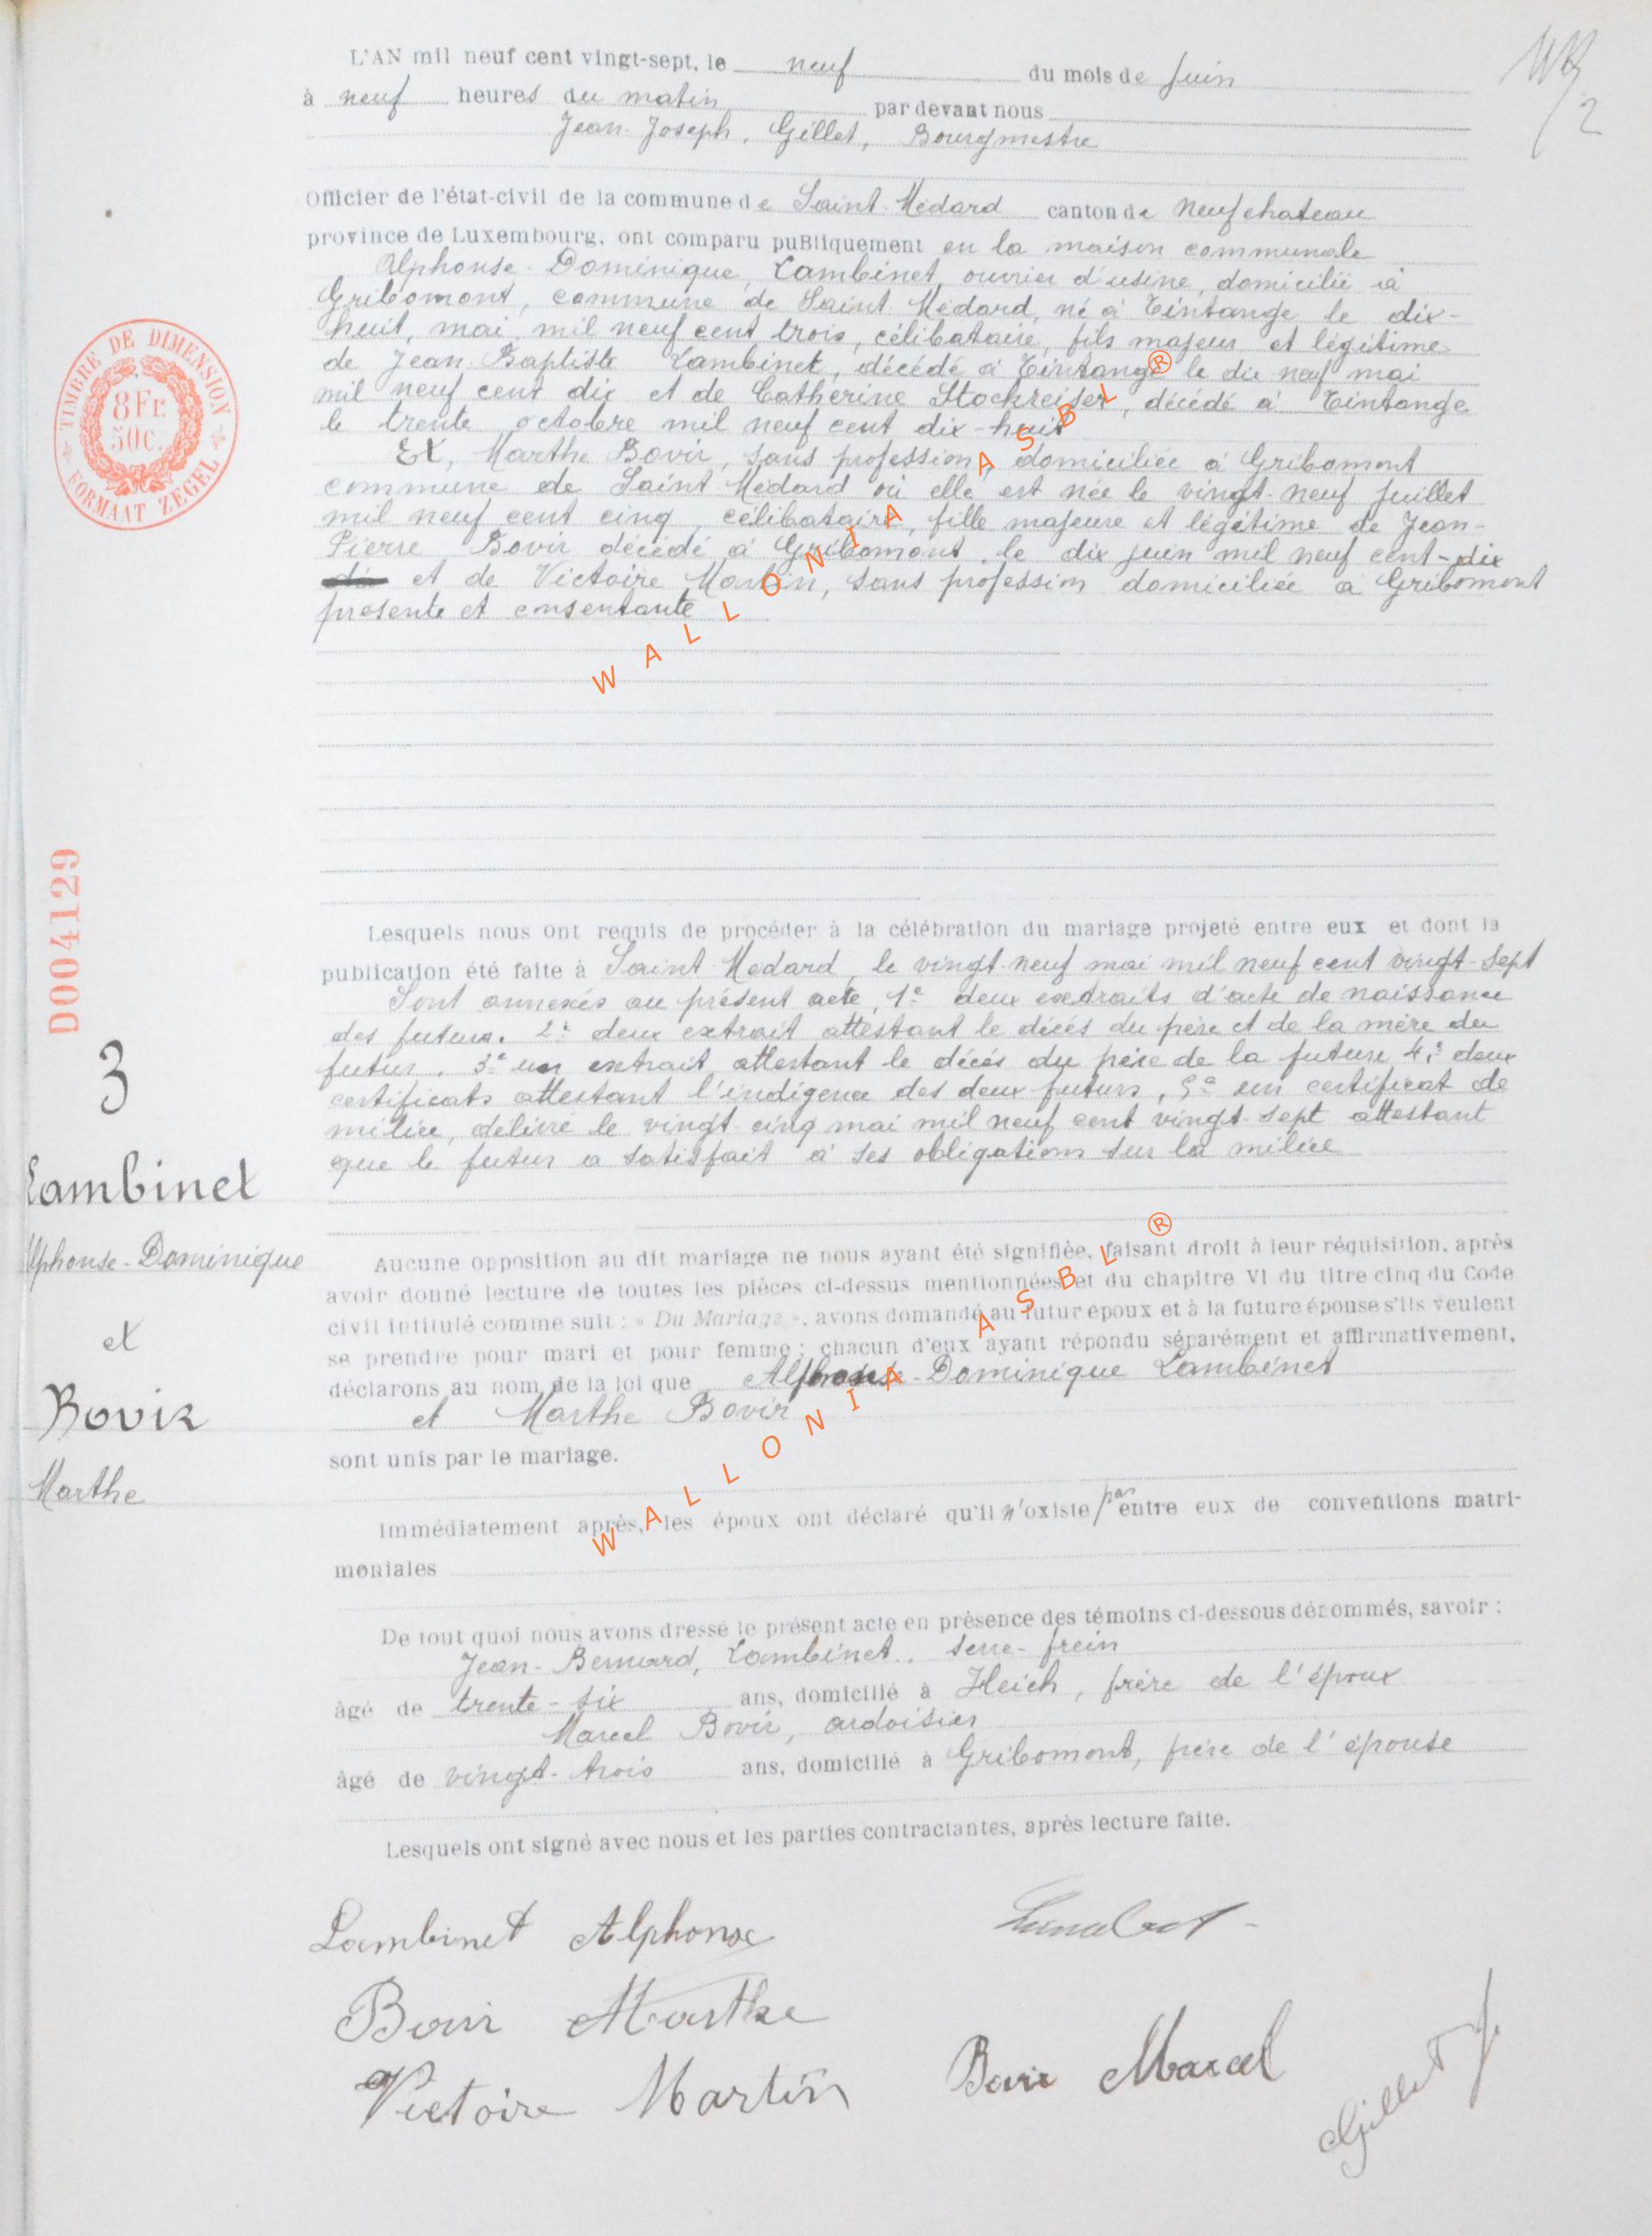 L'AN mil neuf cent vingt-sept, le neuf du mois de Juin
à neuf heures du matin par devant nous
Jean-Joseph, Gillet, Bourgmestre
Officier de l'état-civil de la commune de Saint-Médard canton de Neufchateau
province de Luxembourg, ont comparu puBliquement en la maison communale
Alphonse-Dominique, Lambinet, ouvrier d'usine, domicilié à
Gribomont, commune de Saint Médard, né à Tintange le dix-
huit, mai, mil neuf cent trois, célibataire, fils majeur et légitime
de Jean-Baptiste Lambinet, décédé à Tintange le dix neuf mai
mil neuf cent dix et de Catherine Stockreiser, décédé à Tintange
le trente octobre mil neuf cent dix-huit
Et, Marthe Bovir, sans profession, domiciliée à Gribomont
commune de Saint Médard où elle est née le vingt-neuf Juillet
mil neuf cent cinq, célibataire, fille majeure et légitime de Jean-
Pierre Bovir décédé à Gribomont, le dix juin mil neuf cent-dix
et de Victoire Martin, sans profession domiciliée à Gribomont
présente et consentante
Lesquels nous ont requis de procéder à la célébration du mariage projeté entre eux et dont la
publication été faite à Saint-Médard, le vingt-neuf mai mil neuf cent vingt-sept
Sont annexés au présent acte, 1° deux extraits d'acte de naissance
des futurs. 2° deux extrait attestant le décés du père et de la mère du
futur. 3° un extrait attestant le décés du père de la future 4° deux
certificats attestant l'indigence des deux futurs, 5° un certificat de
milice, délivré le vingt-cinq mai mil neuf cent vingt-sept attestant
que le futur a satisfait à ses obligations sur la milice
Aucune opposition au dit mariage ne nous ayant été signifiée, faisant droit à leur réquisition, après
avoir donné lecture de toutes les pièces ci-dessus mentionnées et du chapitre VI du titre cinq du Code
civil intitulé comme suit : « Du Mariage », avons demandé au futur époux et à la future épouse s'ils veulent
se prendre pour mari et pour femme ; chacun d'eux ayant répondu séparément et affirmativement,
déclarons au nom de la loi que Alphonse-Dominique Lambinet
et Marthe Bovir
sont unis par le mariage.
Immédiatement après, les époux ont déclaré qu'il n'existe pas entre eux de conventions matri-
moniales
De tout quoi nous avons dressé le présent acte en présence des témoins ci-dessous dénommés, savoir :
Jean-Bernard, Lambinet, serre-frein
âgé de trente-six ans, domicilié à Heich, frère de l'époux
Marcel Bovir, ardoisier
âgé de vingt-trois ans, domicilié à Gribomont, frère de l'épouse
Lesquels ont signé avec nous et les parties contractantes, après lecture faite.
Lambinet Alphonse
Bovir Marthe
Victoire Martin
Bovir Marcel
Gillet J
TIMBRE DE DIMENSION
8 Fr.
50c.
FORMAAT ZEGEL
D004129
3
Lambinet
Alphonse-Dominique
et
Bovir
Marthe
2
WALLONIA ASBL ®
WALLONIA ASBL ®